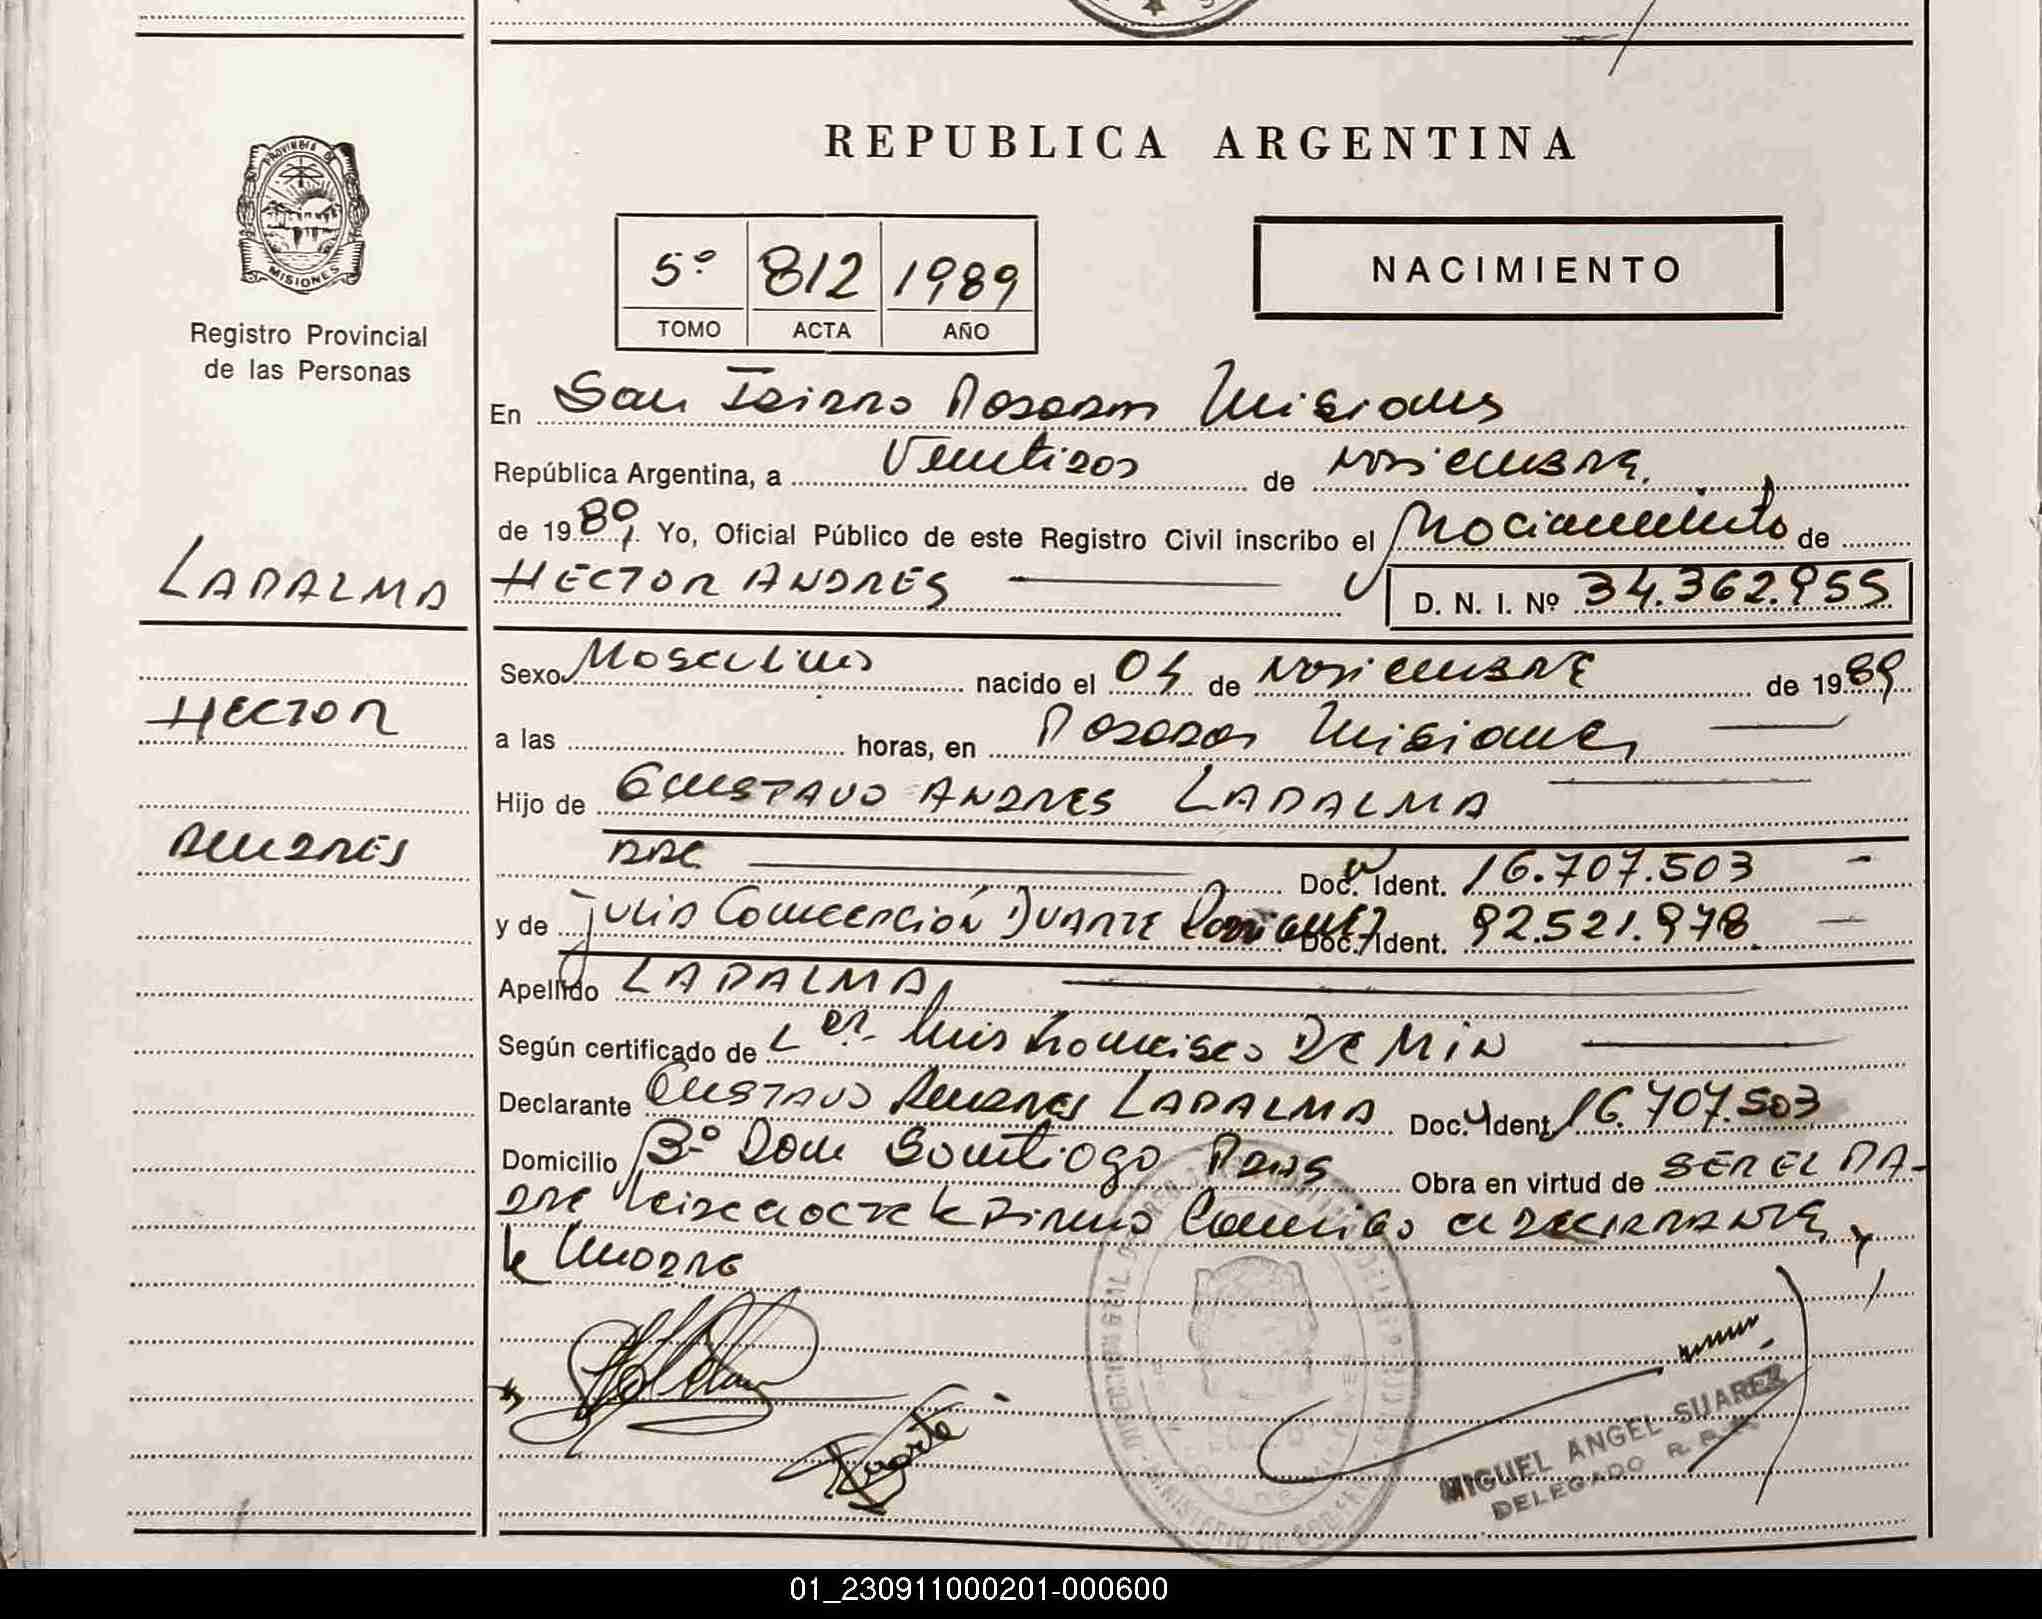 REPUBLICA ARGENTINA
PROVINCIA DE
MISIONES
Registro Provincial
de las Personas
5º 812 1989
TOMO ACTA AÑO
NACIMIENTO
En San Isidro Posadas Misiones
República Argentina, a Veintidos de Noviembre.
de 1989. Yo, Oficial Público de este Registro Civil inscribo el Nacimiento de
LAPALMA
HECTOR ANDRES
D. N. I. Nº 34.362.955
Sexo Masculino nacido el 04 de Noviembre de 1989
HECTOR
a las horas, en Posadas Misiones
Hijo de GUSTAVO ANDRES LAPALMA
ANDRES
Doc. Ident. 16.707.503
y de Julia Concepción DUARTE Doc. Ident. 92.521.978
Apellido LAPALMA
Según certificado de Luis Francisco DE MIN
Declarante GUSTAVO ANDRES LAPALMA Doc. Ident. 16.707.503
Domicilio Bº Don Santiago Pdas Obra en virtud de SER EL PA-
DRE conmigo el DECLARANTE y
la Madre
Duarte
MIGUEL ANGEL SUAREZ
DELEGADO R. P. P.
01_230911000201-000600